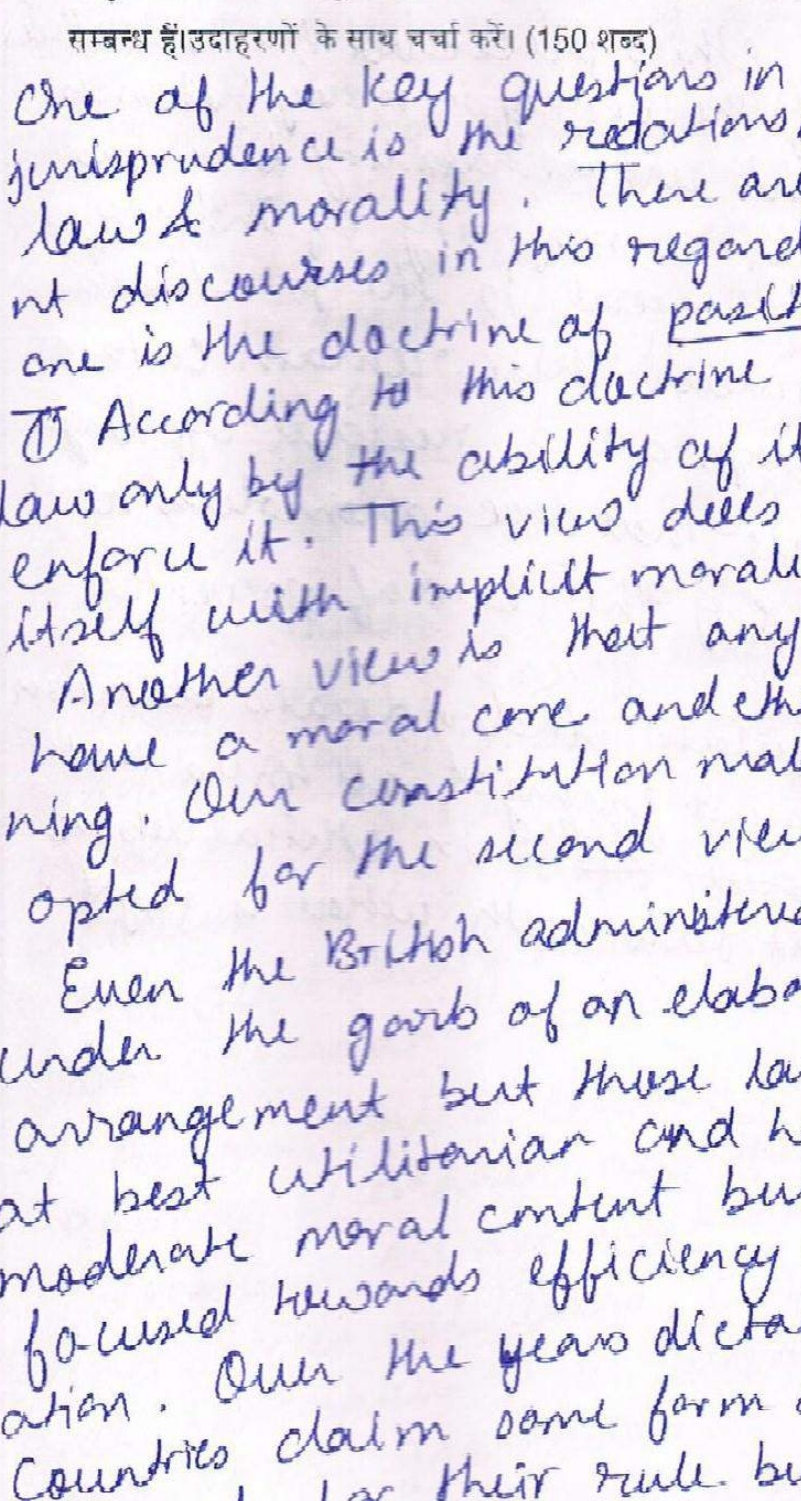 सम्बन्ध हैं।उदाहरणों के साथ चर्चा करें। (150 शब्द)
One of the key questions in
jurisprudence is the relations
law & morality. There are
nt discourses in this regard
one is the doctrine of posit
According to this doctrine
law only by the ability of it
enforce it. This view does
itself with implicit morali
Another view is that any
have a moral core and eth
ning. Our constitution mak
opted for the second view
Even the British administe
under the garb of an elabo
arrangement but those la
at best utilitarian and h
moderate moral content bu
focused towards efficiency
ation. Over the years dicta
Countries claim some form
their rule bu